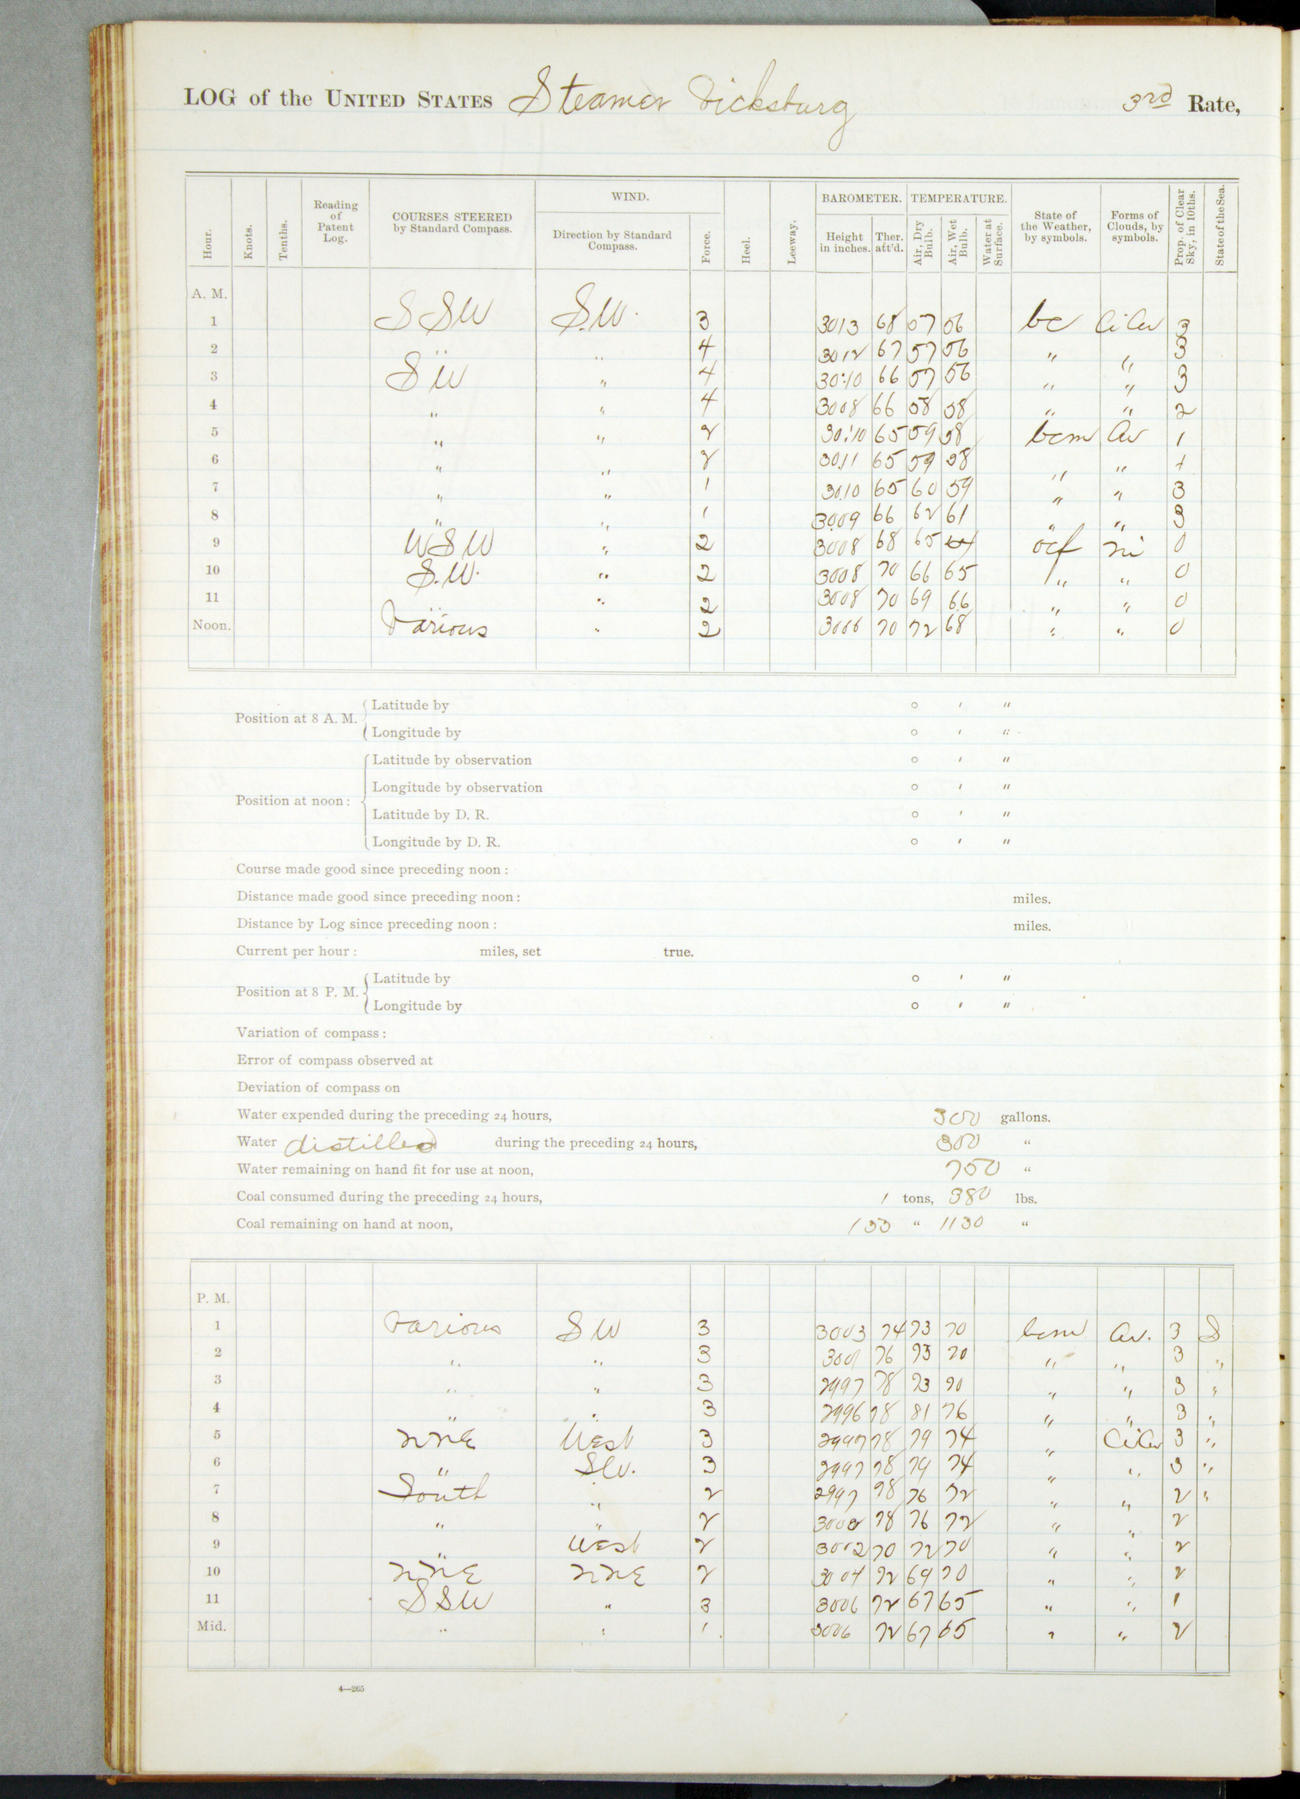 LOG of the UNITED STATES Steamer Vicksburg 3rd Rate,
Hour. Knots. Tenths. Reading of Patent Log. COURSES STEERED by Standard Compass. WIND. Direction by Standard Compass. Force. Heel. Leeway. BAROMETER. Height in inches. Ther. att'd. TEMPERATURE. Air, Dry Bulb. Air, Wet Bulb. Water at Surface. State of the Weather, by symbols. Forms of Clouds, by symbols. Prop. of Clear Sky, in 10ths. State of the Sea.
A. M.
1 SSW S.W. 3 3013 68 57 56 bc Ci Cu 3
2 " " 4 3012 67 57 56 " " 3
3 SW " 4 30.10 66 57 56 " " 3
4 " " 4 3008 66 58 58 " " 2
5 " " 2 30.10 65 59 58 bcm Cu 1
6 " " 2 3011 65 59 58 " " 1
7 " " 1 3010 65 60 59 " " 3
8 " " 1 3009 66 62 61 " " 3
9 WSW " 2 3008 68 65 64 ocf Ni 0
10 S.W. " 2 3008 70 66 65 " " 0
11 " " 2 3008 70 69 66 " " 0
Noon. Various " 2 3006 70 72 68 " " 0
Position at 8 A. M. Latitude by ° ' "
Longitude by ° ' "
Position at noon: Latitude by observation ° ' "
Longitude by observation ° ' "
Latitude by D. R. ° ' "
Longitude by D. R. ° ' "
Course made good since preceding noon:
Distance made good since preceding noon: miles.
Distance by Log since preceding noon: miles.
Current per hour: miles, set true.
Position at 8 P. M. Latitude by ° ' "
Longitude by ° ' "
Variation of compass:
Error of compass observed at
Deviation of compass on
Water expended during the preceding 24 hours, 300 gallons.
Water distilled during the preceding 24 hours, 300 "
Water remaining on hand fit for use at noon, 750 "
Coal consumed during the preceding 24 hours, 1 tons, 380 lbs.
Coal remaining on hand at noon, 133 " 1130 "
P. M.
1 Various SW 3 3003 74 73 70 bcm Cu. 3 S
2 " " 3 3001 76 73 70 " " 3 "
3 " " 3 2997 78 73 70 " " 3 "
4 " " 3 2996 78 81 76 " " 3 "
5 NNE West 3 2997 78 79 74 " Ci Cu 3 "
6 " SW. 3 2997 78 79 74 " " 3 "
7 South " 2 2997 78 76 72 " " 2 "
8 " " 2 3000 78 76 72 " " 2
9 " West 2 3002 70 72 70 " " 2
10 NNE NNE 2 3004 72 69 70 " " 2
11 SSW " 3 3006 72 67 65 " " 1
Mid. " " 1 3006 72 67 65 " " 2
4—265